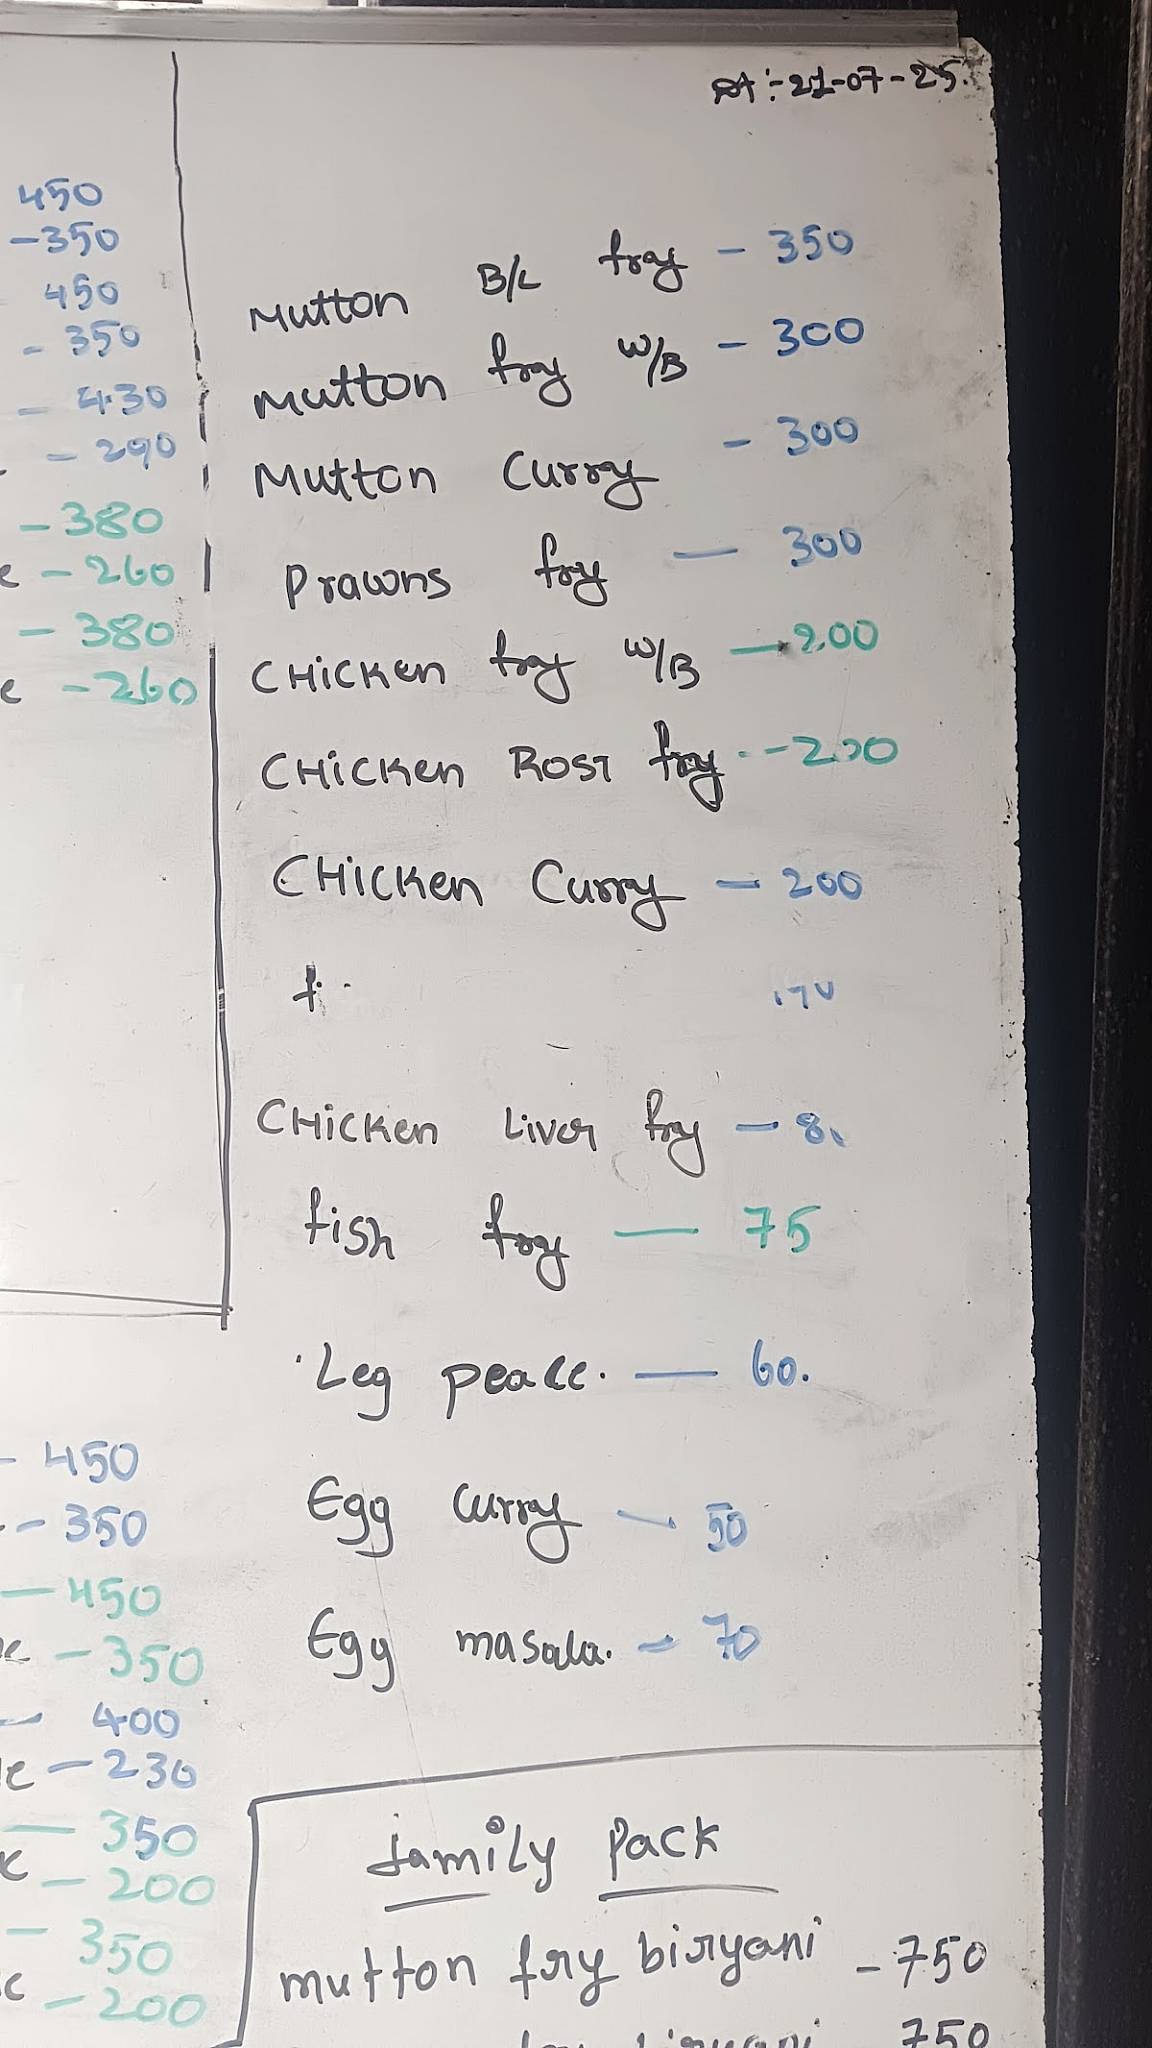 Dt:-21-07-25.
450
-350
450
- 350
- 430
- 290
- 380
e - 260
- 380
e - 260
Mutton B/L fry - 350
Mutton fry W/B - 300
Mutton Curry - 300
Prawns fry - 300
CHicken fry W/B - 200
CHicken Rost fry - 200
CHicken Curry - 200
CHicken Liver fry - 8
fish fry - 75
Leg peace. - 60.
Egg curry - 50
Egg masala. - 70
- 450
- 350
- 450
- 350
- 400
e - 230
- 350
- 200
- 350
- 200
family Pack
mutton fry biryani - 750
biryani 750